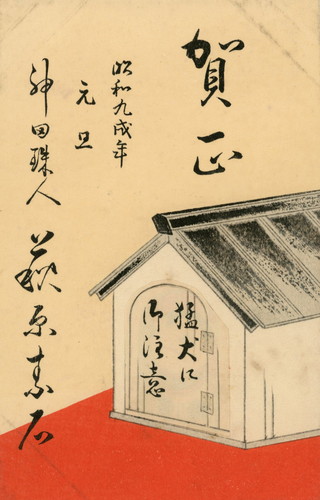 賀正
昭和九戌年
元旦
神田珠人
萩原素石
猛犬に
御注意